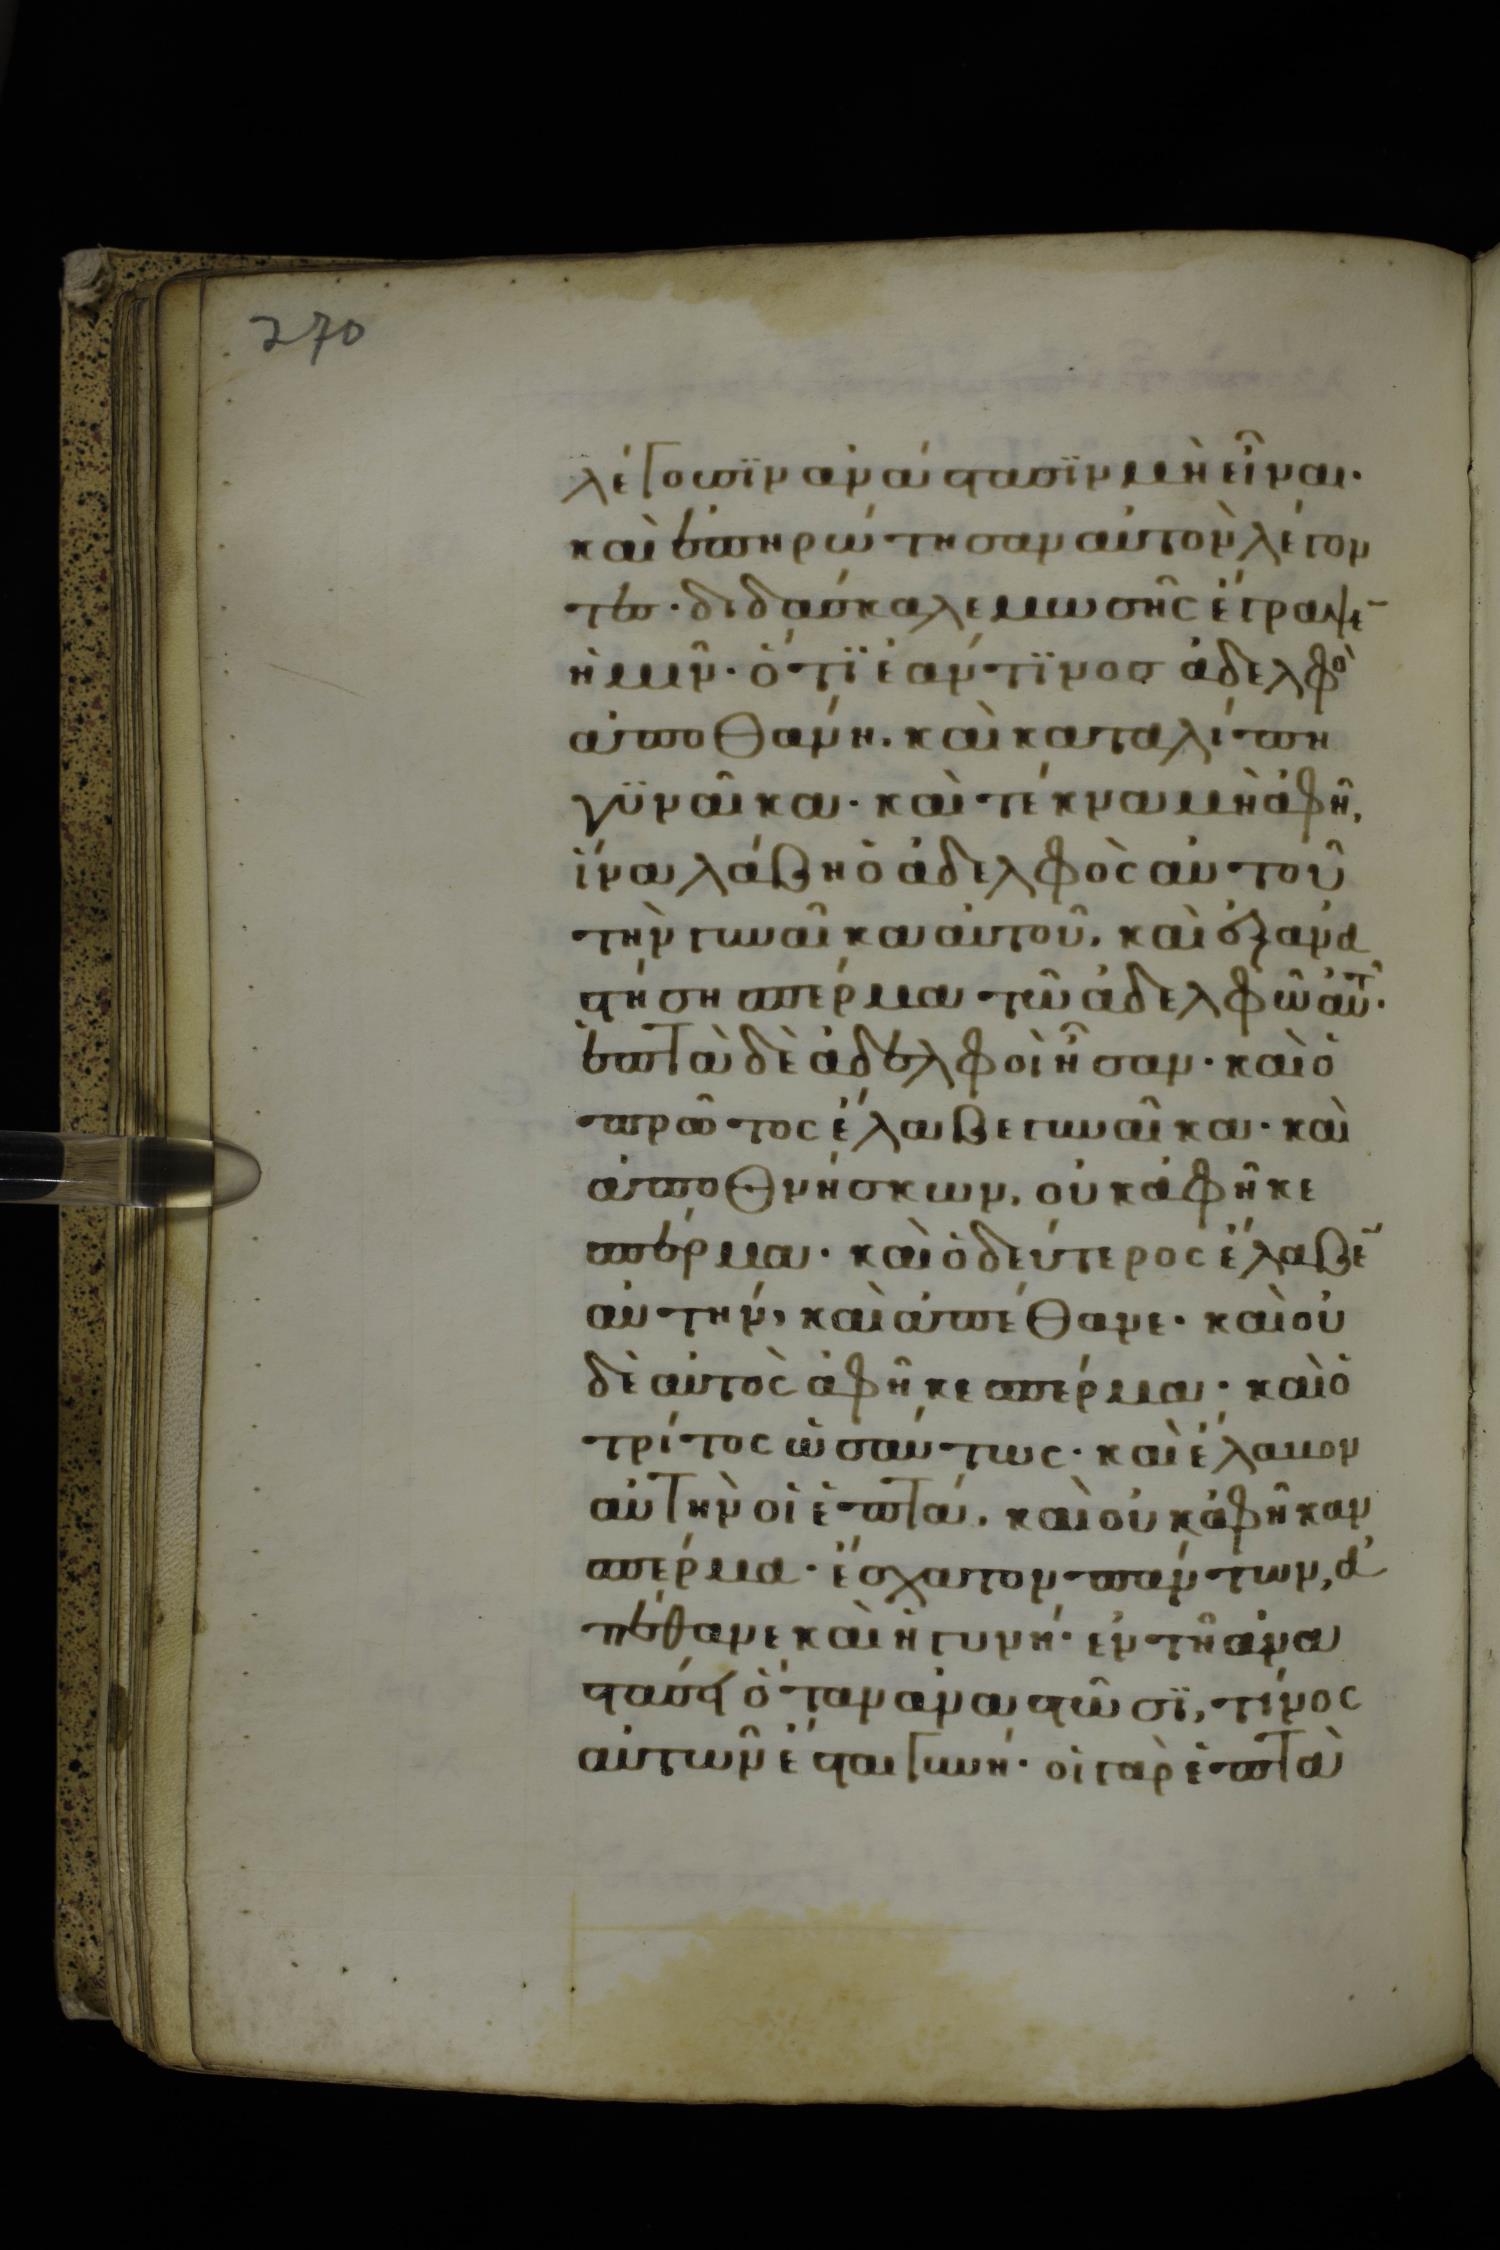 270
λέγουσϊν ἀνάστασϊν μὴ εἶναι·
καὶ ἐπηρώτησαν αὐτὸν λέγον
τες· διδάσκαλε μωσῆς ἔγραψε
ἡμῖν· ὅτϊ ἐάν τϊνος ἀδελφὸ
ἀποθάνη. καὶ καταλίπη
γϋναῖκα· καὶ τέκνα μὴ ἀφῆ,
ἵνα λάβη ὁ ἀδελφὸς αὐτοῦ
τὴν γυναῖκα αὐτοῦ, καὶ ἐξανα
στήση σπέρμα τῶ ἀδελφῶ αὐτ̂·
ἑπτὰ δὲ ἀδελφοὶ ἦσαν· καὶ ὁ
πρῶτος ἔλαβε γυναῖκα· καὶ
ἀποθνήσκων, οὐκ ἀφῆκε
σπέρμα· καὶ ὁ δεύτερος ἔλαβε
αὐτήν, καὶ ἀπέθανε· καὶ οὐ
δὲ αὐτὸς ἀφῆκε σπέρμα· καὶ ὁ
τρίτος ὡσαύτως· καὶ ἔλαβον
αὐτὴν οἱ ἑπτά. καὶ οὐκ ἀφῆκαν
σπέρμα· ἔσχατον πάντων, ἀ
πέθανε καὶ ἡ γυνή· ἐν τῆ ἀνα
στάσει ὅταν ἀναστῶσϊ, τίνος
αὐτῶν ἔσται γυνή· οἱ γὰρ ἑπτὰ